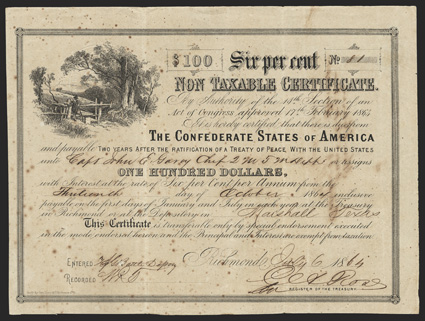 $100 Six per cent No 11
NON TAXABLE CERTIFICATE.
By Authority of the 18th Section of an
Act of Congress approved 17th February 1864
It is hereby certified that there is due from
THE CONFEDERATE STATES OF AMERICA
and payable TWO YEARS AFTER THE RATIFICATION OF A TREATY OF PEACE, WITH THE UNITED STATES
unto Capt John E. or assigns
ONE HUNDRED DOLLARS,
with Interest at the rate of Six per Cent per Annum from the
Thirteenth day of October 1864 inclusive
payable on the first days of January and July in each year at the treasury
in Richmond or at the Depository in Marshall Texas
This Certificate is transferable only by special endorsement executed
in the mode endorsed hereon and the Principal and Interest are exempt from taxation
Richmond July 6 1864
ENTERED
RECORDED
REGISTER OF THE TREASURY